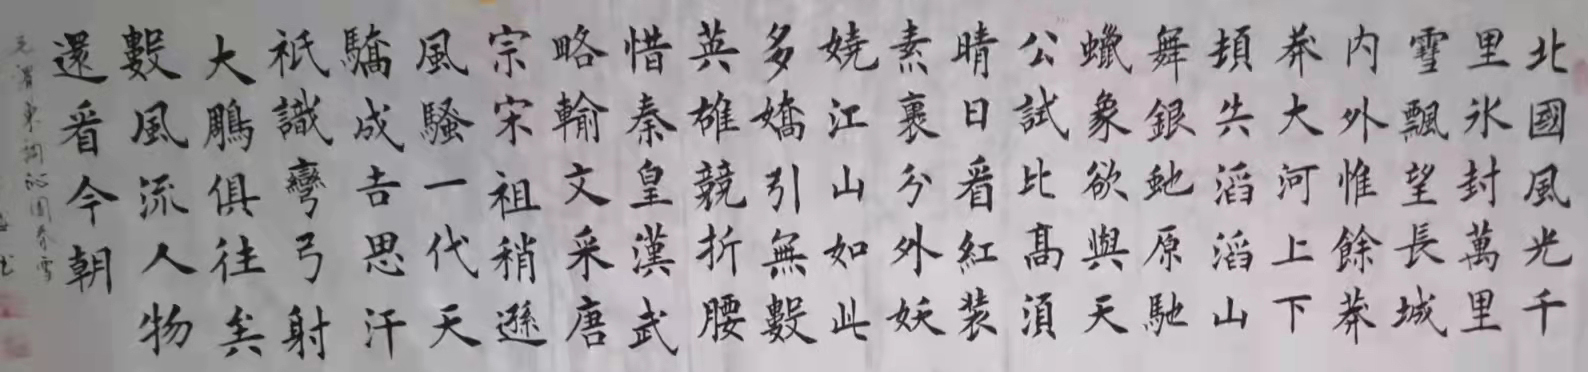 北國風光千
里氷封萬里
雪飄望長城
内外惟餘莽
莽大河上下
頓失滔滔山
舞銀虵原馳
蠟象欲與天
公試比髙須
晴日看紅装
素裹分外妖
嬈江山如此
多嬌引無數
英雄競折腰
惜秦皇漢武
略輸文采唐
宗宋祖稍遜
風騷一代天
驕成吉思汗
祇識彎弓射
大鵰俱往矣
數風流人物
還看今朝
毛澤東詞沁園春雪